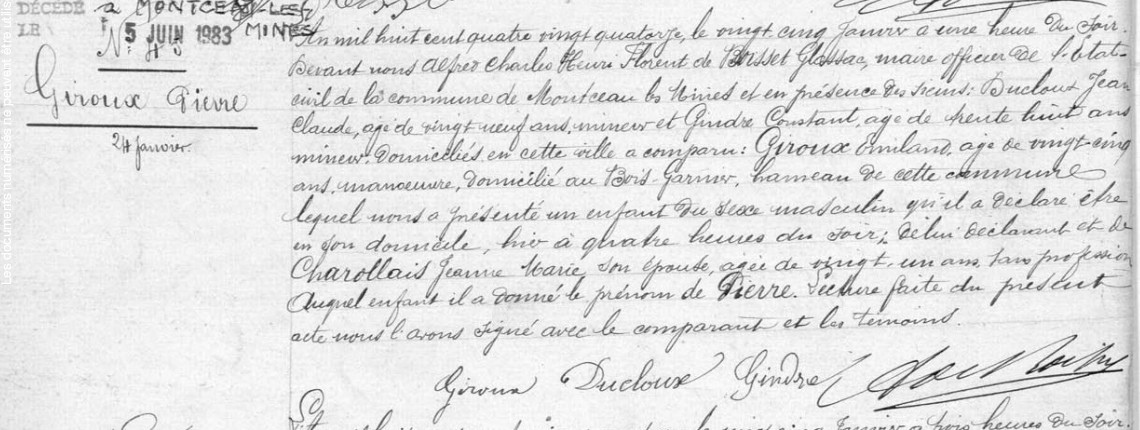 DÉCÉDÉ à MONTCEAU-LES-MINES
LE 5 JUIN 1983
Giroux Pierre
24 Janvier
An mil huit cent quatre vingt quatorze, le vingt cinq Janvier à une heure du soir.
Devant nous Alfred Charles Henri Florent de Boisset Glassac, maire officier de l'état-
civil de la commune de Montceau les Mines et en présence des sieurs: Ducloux Jean
Claude, agé de vingt neuf ans, mineur et Gindre Constant, agé de trente huit ans
mineur. Domiciliés en cette ville a comparu: Giroux Emiland, agé de vingt-cinq
ans, manœuvre, domicilié au Bois-Garnier, hameau de cette commune
lequel nous a présenté un enfant du sexe masculin qu'il a déclaré être
en son domicile, hier à quatre heures du soir; de lui déclarant et de
Charollais Jeanne Marie, son épouse, agée de vingt-un ans, sans profession
Auquel enfant il a donné le prénom de Pierre. Lecture faite du présent
acte nous l'avons signé avec le comparant et les témoins.
Giroux Ducloux Gindre
Janvier à trois heures du soir.